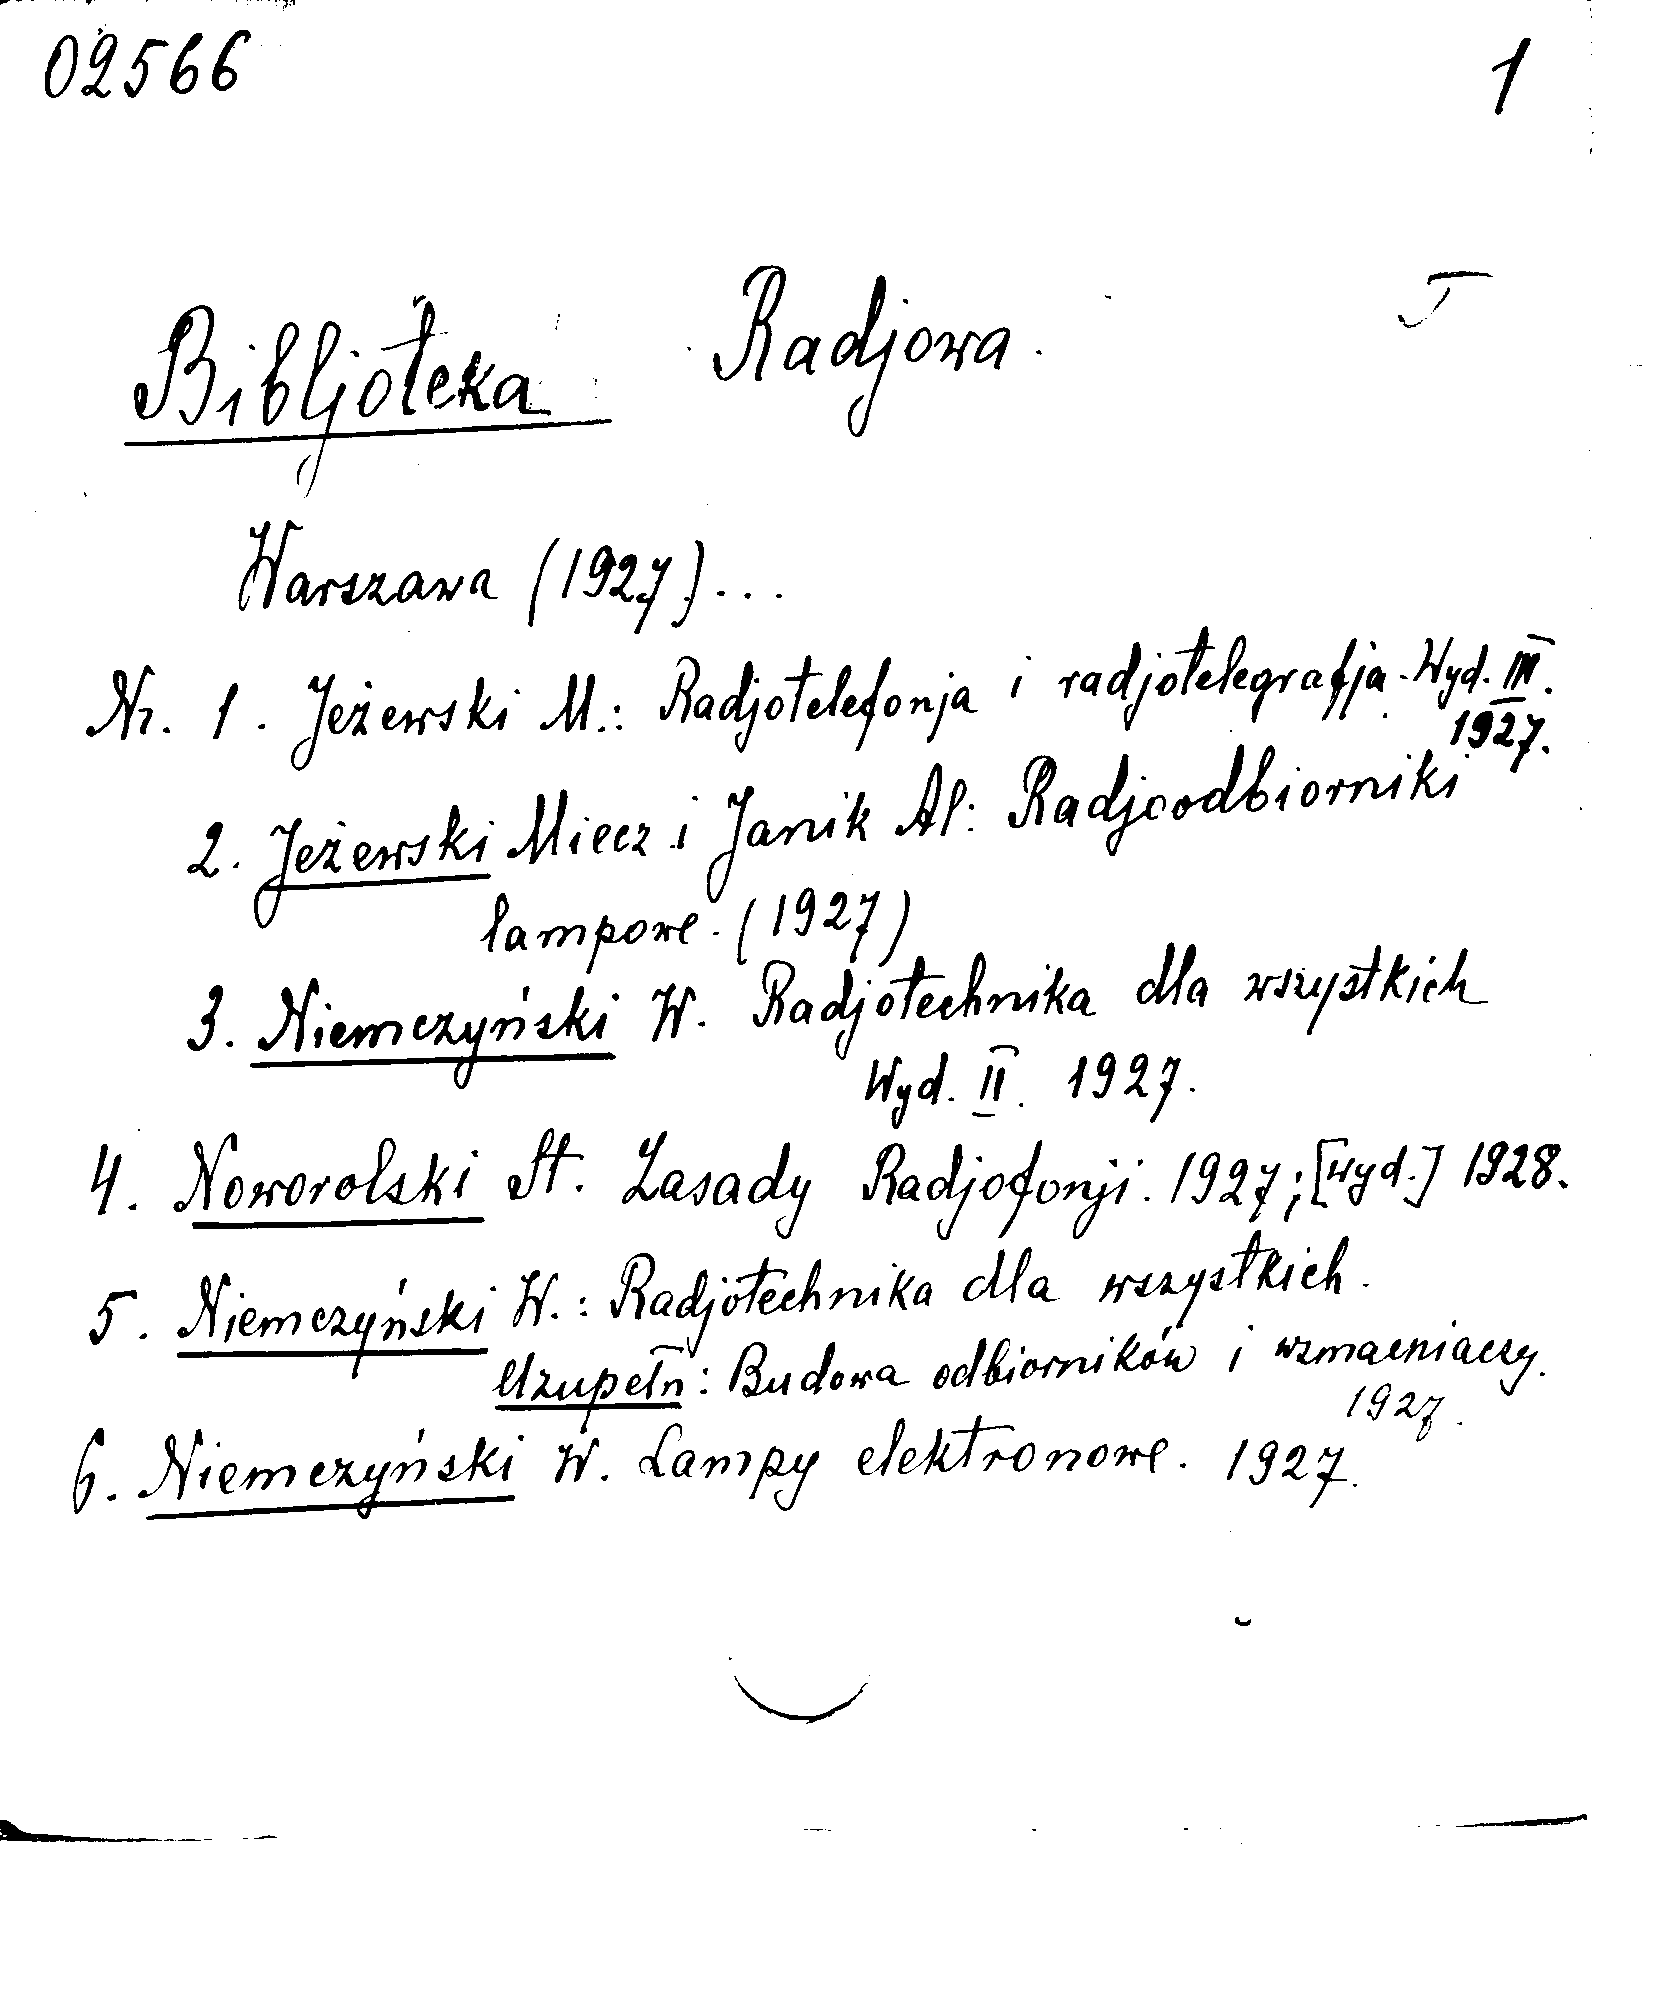 02566 1
Bibljoteka Radjowa.
Warszawa (1927)...
Nr. 1. Jeżewski M.: Radjotelefonja i radjotelegrafja. Wyd. III.
1927.
2. Jeżewski Miecz i Janik Al: Radjoodbiorniki
lampowe. (1927)
3. Niemczyński W. Radjotechnika dla wszystkich
Wyd. II. 1927.
4. Noworolski St. Zasady Radjofonji. 1927; [wyd.] 1928.
5. Niemczyński W.: Radjotechnika dla wszystkich.
Uzupełn: Budowa odbiorników i wzmacniaczy.
1927.
6. Niemczyński W. Lampy elektronowe. 1927.